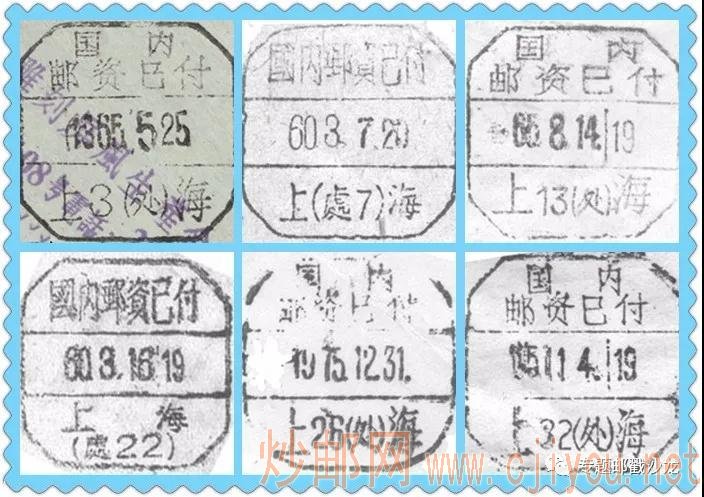 国 内
邮资已付
1965.5.25
上3(处)海
国内郵資已付
60.3.7.20
上(處7)海
国 内
邮资已付
65.8.14.19
上13(处)海
國內郵資已付
60.3.16.19
上 海
(處22)
国 内
邮资已付
1975.12.31.
上26(处)海
国 内
邮资已付
11.4.19
上32(处)海
专题邮戳沙龙
炒邮网 www.cjiyou.net